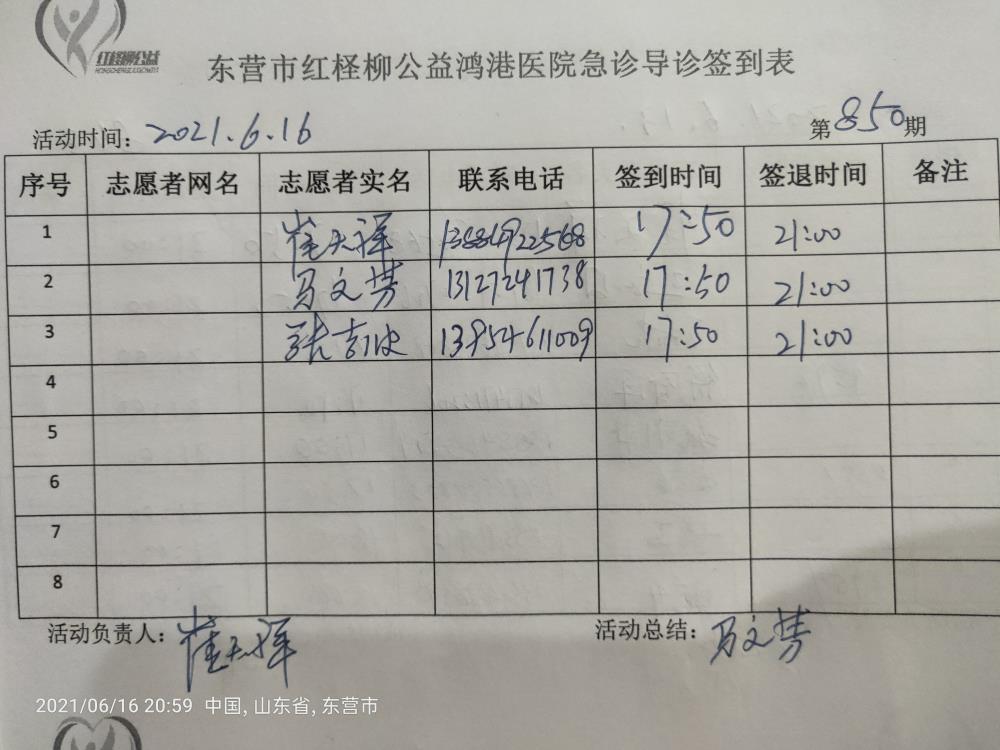 红柽柳公益
东营市红柽柳公益鸿港医院急诊导诊签到表
活动时间：2021.6.16 第850期
序号 志愿者网名 志愿者实名 联系电话 签到时间 签退时间 备注
1 崔天祥 13884922568 17:50 21:00
2 马文芳 13127241738 17:50 21:00
3 张吉波 13954611009 17:50 21:00
4
5
6
7
8
活动负责人：崔天祥 活动总结：马文芳
2021/06/16 20:59 中国, 山东省, 东营市